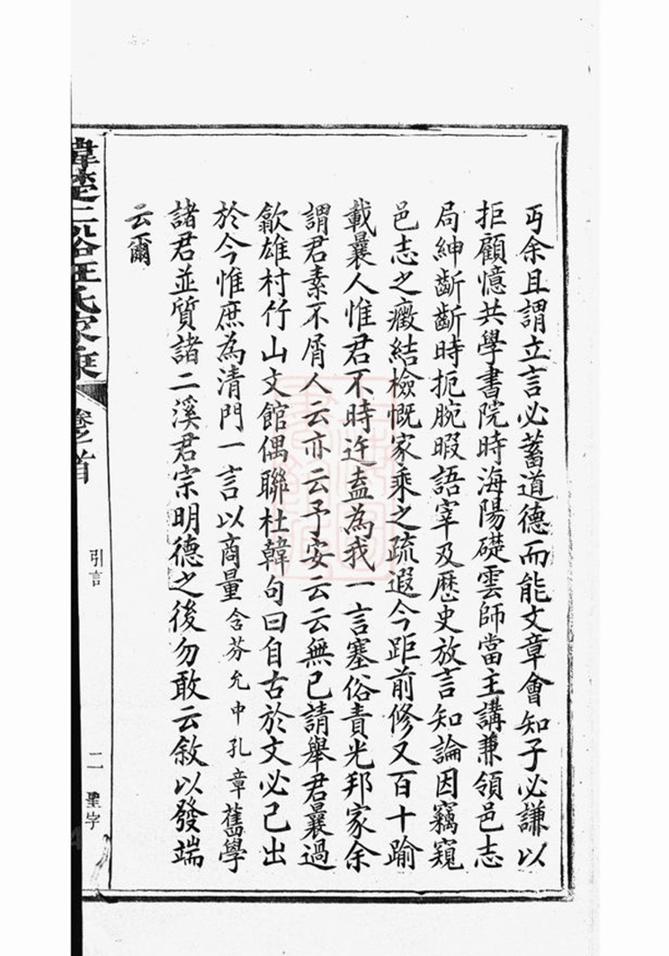 丐余且謂立言必蓄道德而能文章會知子必謙以
拒顧憶共學書院時海陽礎雲師當主講兼領邑志
局紳齗齗時扼腕暇語宰及歷史放言知論因竊窺
邑志之癥結檢慨家乘之疏遐今距前修又百十踰
載曩人惟君不時迕盍為我一言塞俗責光邦家余
謂君素不屑人云亦云予安云云無已請舉君曩過
歙雄村竹山文館偶聯杜韓句曰自古於文必己出
於今惟庶為清門一言以商量含芬允中孔章舊學
諸君並質諸二溪君宗明德之後勿敢云敘以發端
云爾
韓楚二溪汪氏家乘
卷之首
引言
二
聖字